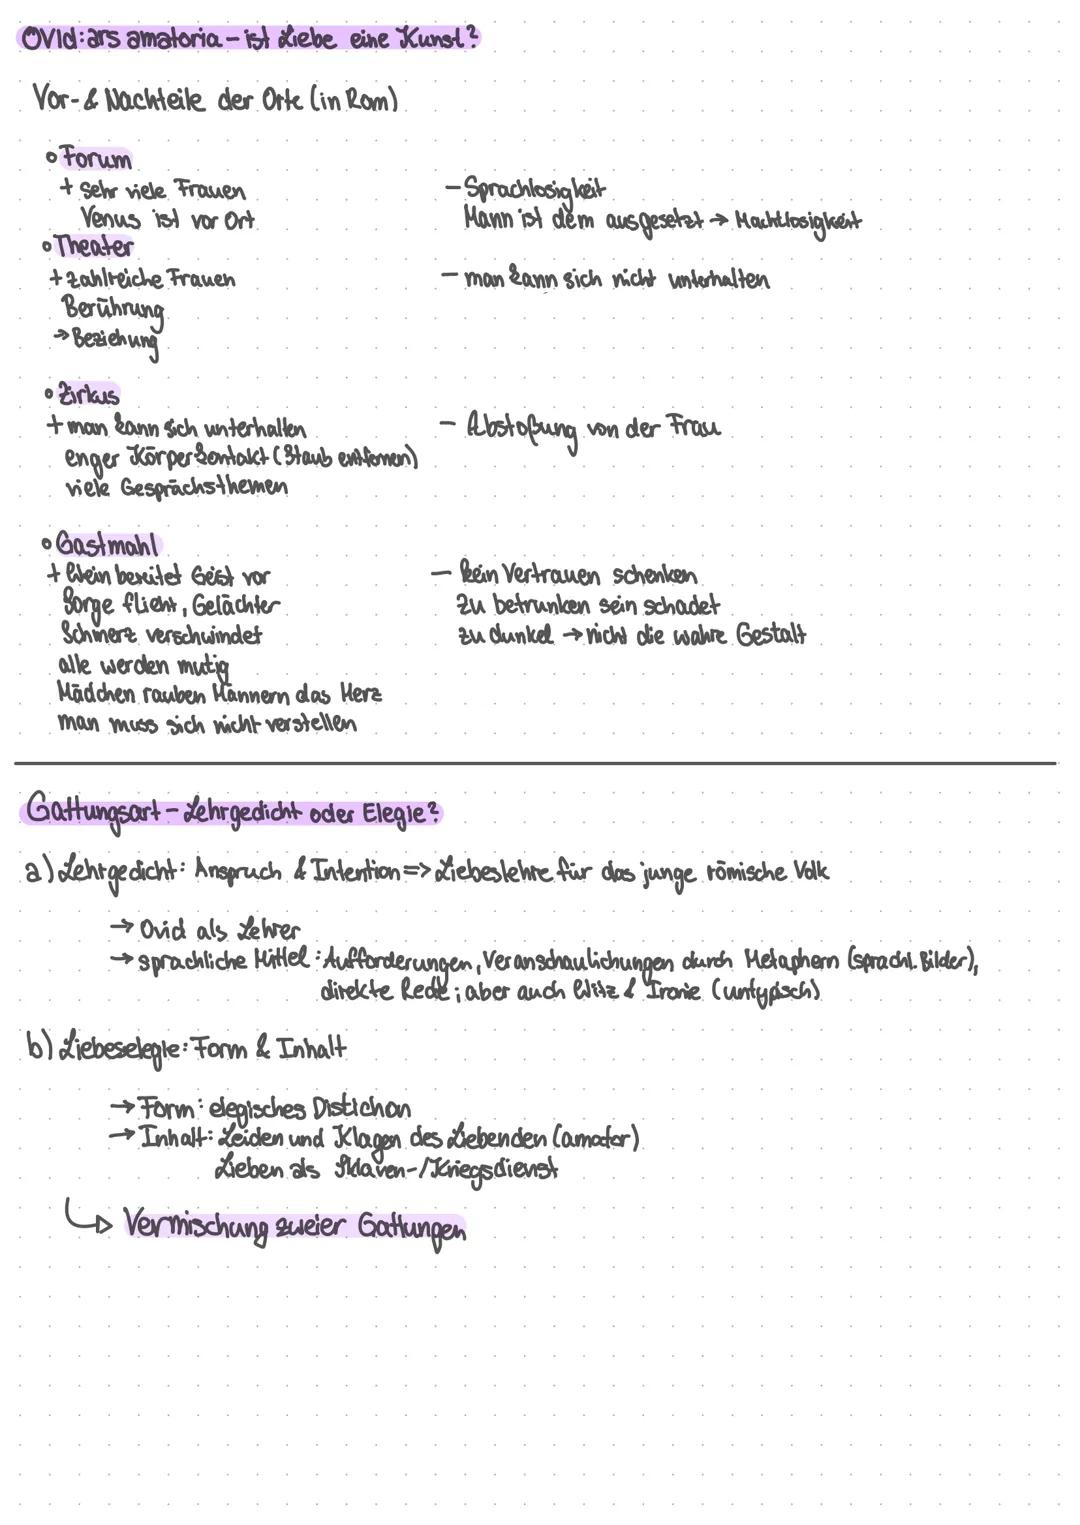 Ovid: ars amatoria – ist Liebe eine Kunst?
Vor- & Nachteile der Orte (in Rom)
• Forum
+ sehr viele Frauen – Sprachlosigkeit
Venus ist vor Ort Mann ist dem ausgesetzt → Machtlosigkeit
• Theater
+ zahlreiche Frauen – man kann sich nicht unterhalten
Berührung
→ Beziehung
• Zirkus
+ man kann sich unterhalten – Abstoßung von der Frau
enger Körperkontakt (Staub entfernen)
viele Gesprächsthemen
• Gastmahl
+ Wein bereitet Geist vor – kein Vertrauen schenken
Sorge flieht, Gelächter zu betrunken sein schadet
Schmerz verschwindet zu dunkel → nicht die wahre Gestalt
alle werden mutig
Mädchen rauben Männern das Herz
man muss sich nicht verstellen
Gattungsart – Lehrgedicht oder Elegie?
a) Lehrgedicht: Anspruch & Intention => Liebeslehre für das junge römische Volk
→ Ovid als Lehrer
→ sprachliche Mittel: Aufforderungen, Veranschaulichungen durch Metaphern (sprachl. Bilder),
direkte Rede; aber auch Witz & Ironie (untypisch)
b) Liebeselegie: Form & Inhalt
→ Form: elegisches Distichon
→ Inhalt: Leiden und Klagen des Liebenden (amator)
Lieben als Sklaven-/Kriegsdienst
Vermischung zweier Gattungen